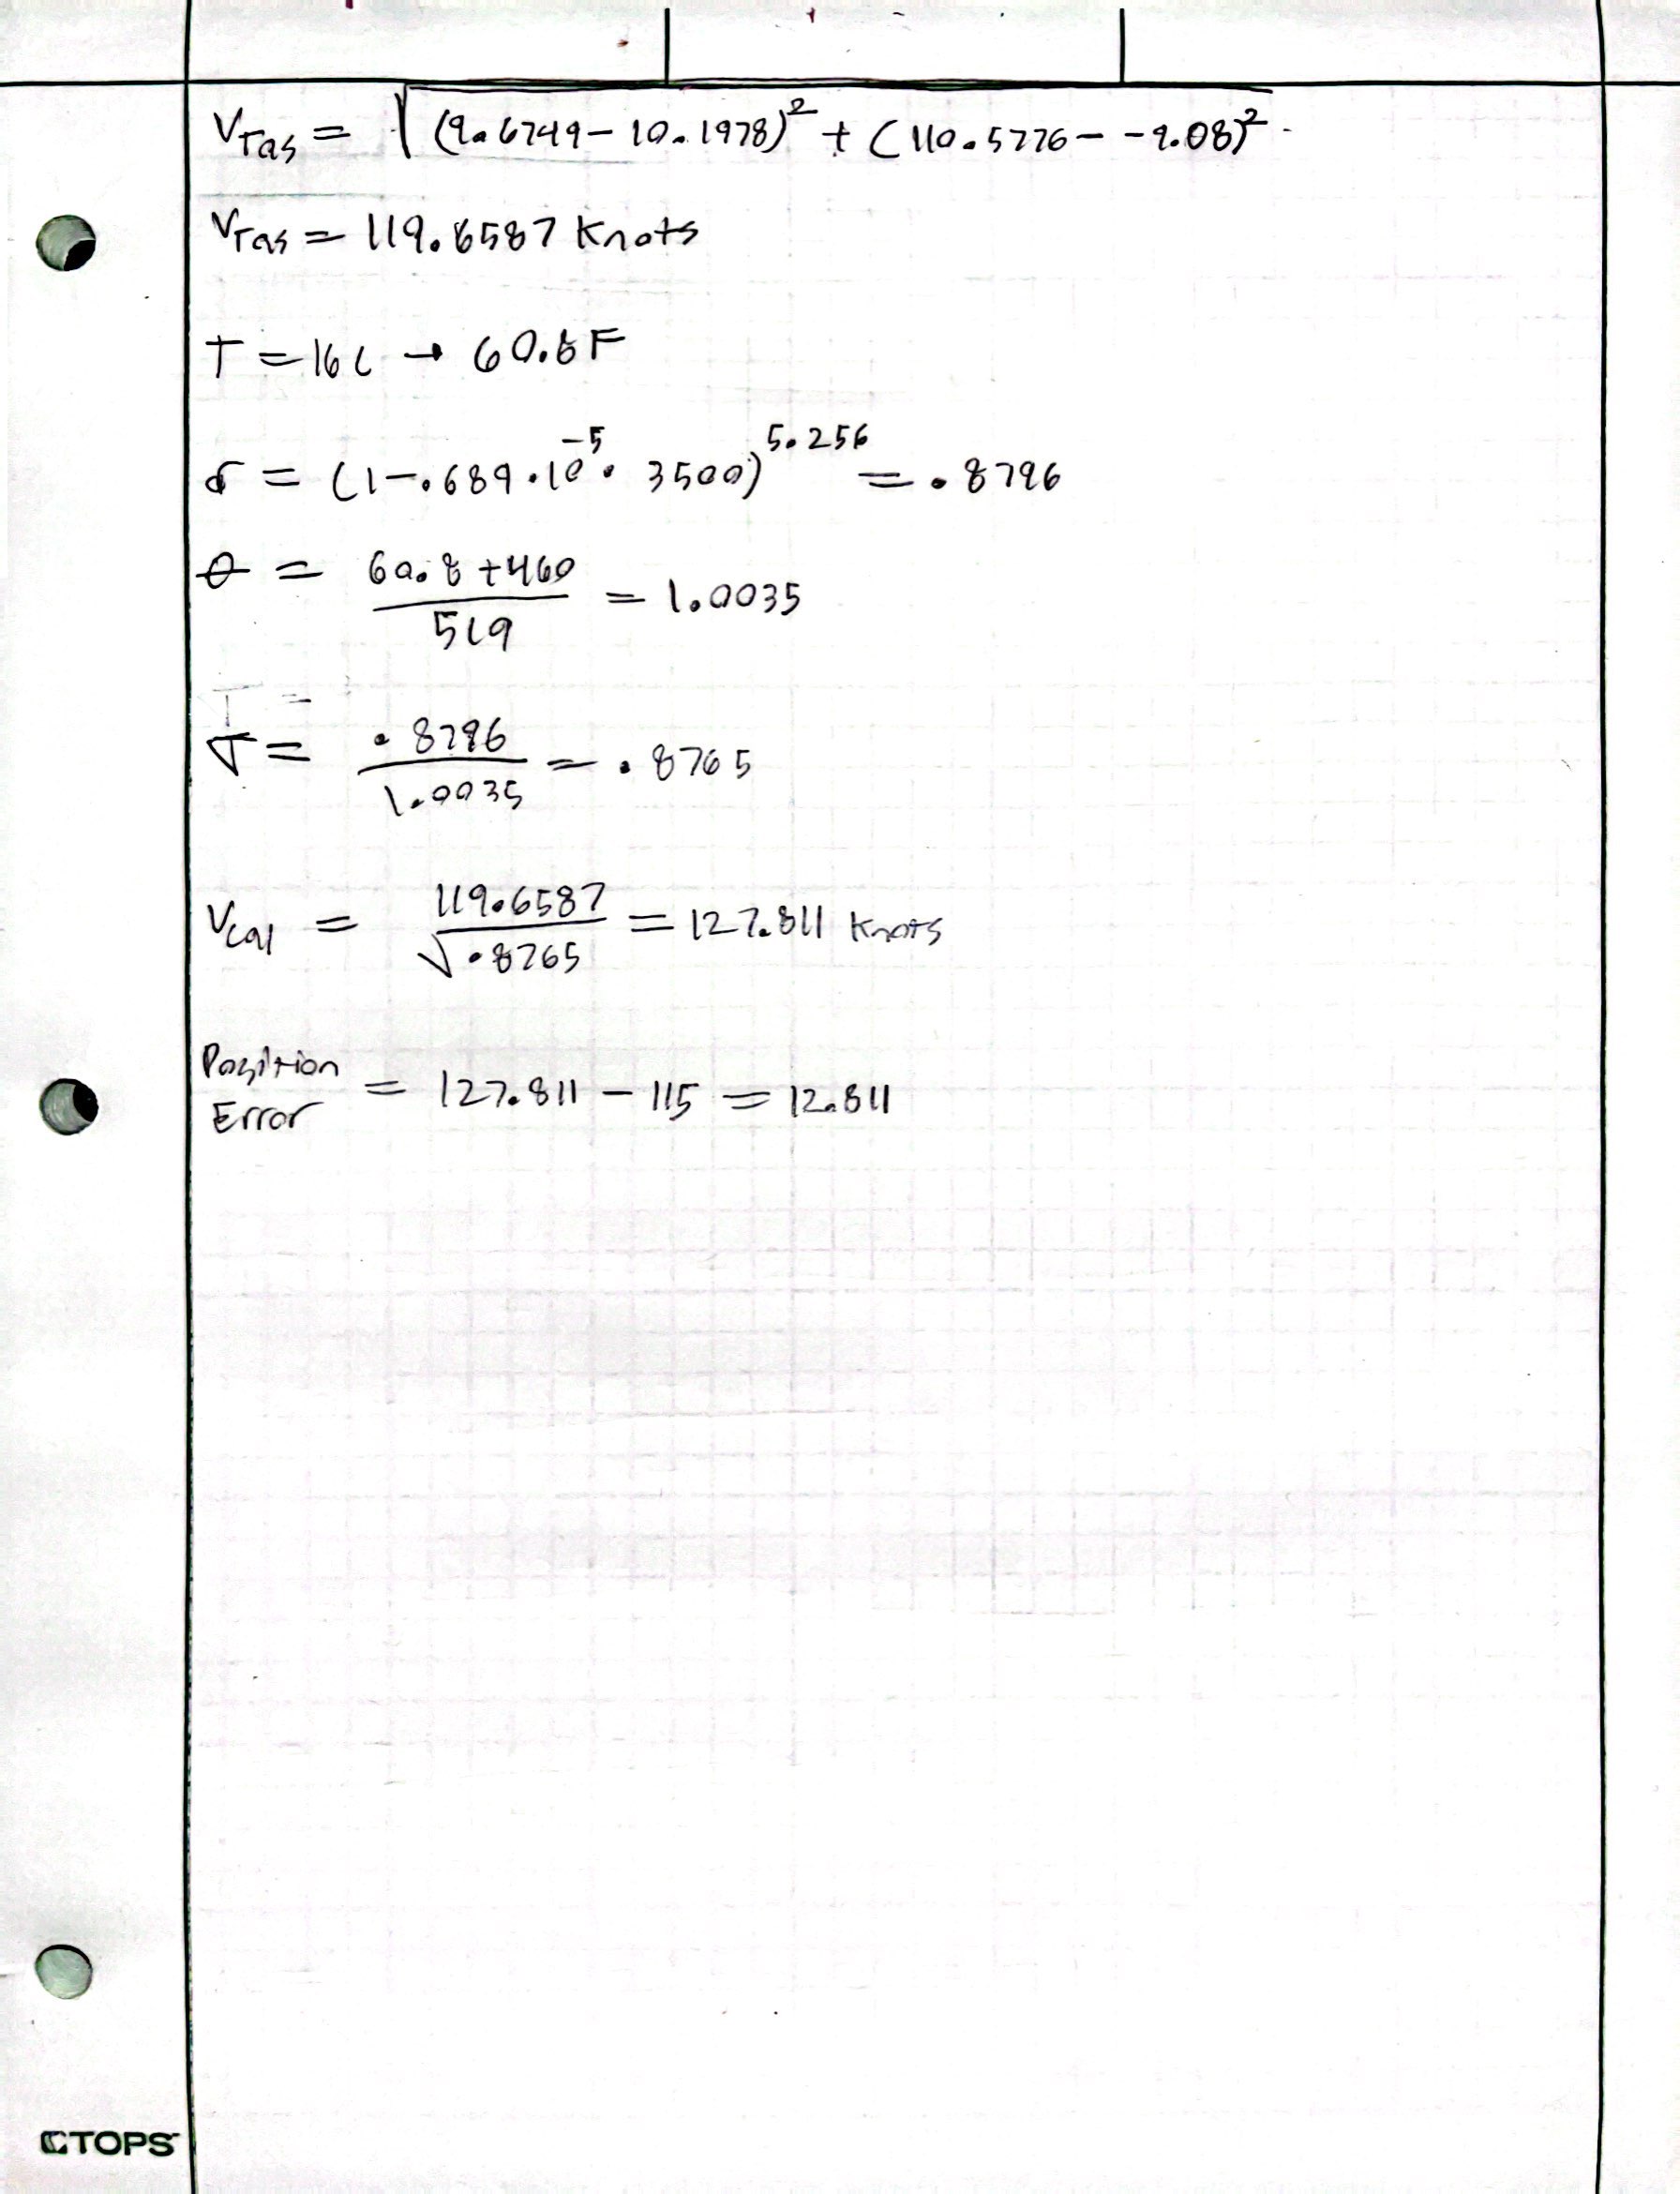 V_Tas = √((9.6749 - 10.1978)² + (110.5776 - -9.08)²)
V_Tas = 119.6587 Knots
T = 16C → 60.8F
δ = (1-.689·10⁻⁵· 3500)^5.256 = .8796
θ = (60.8 + 460)/519 = 1.0035
σ = .8796/1.0035 = .8765
V_cal = 119.6587/√.8765 = 127.811 Knots
Position Error = 127.811 - 115 = 12.811
TOPS